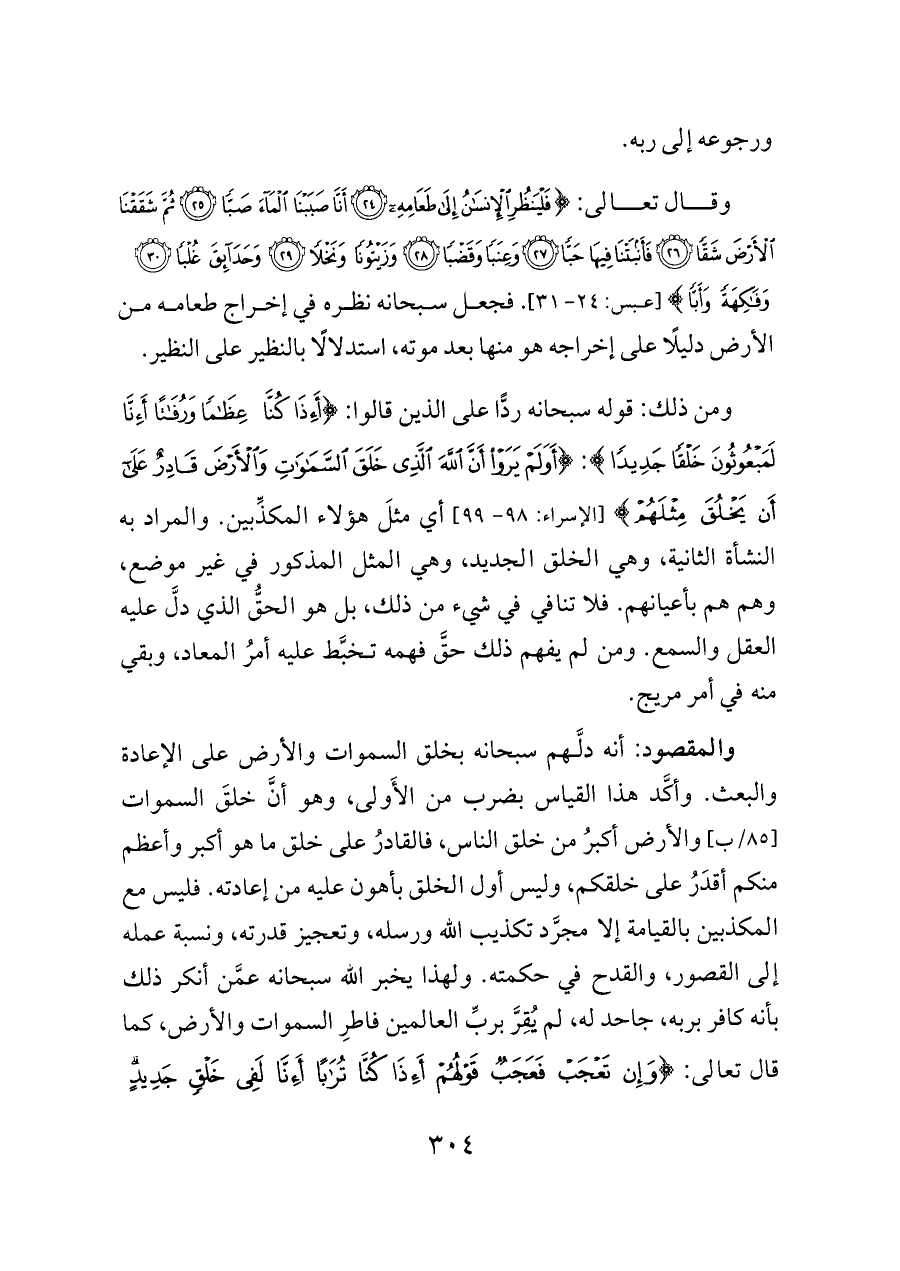 ورجوعه إلى ربه.
وقال تعالى: ﴿فَلْيَنظُرِ ٱلْإِنسَٰنُ إِلَىٰ طَعَامِهِۦٓ ۝٢٤ أَنَّا صَبَبْنَا ٱلْمَآءَ صَبًّا ۝٢٥ ثُمَّ شَقَقْنَا
ٱلْأَرْضَ شَقًّا ۝٢٦ فَأَنۢبَتْنَا فِيهَا حَبًّا ۝٢٧ وَعِنَبًا وَقَضْبًا ۝٢٨ وَزَيْتُونًا وَنَخْلًا ۝٢٩ وَحَدَآئِقَ غُلْبًا ۝٣٠
وَفَٰكِهَةً وَأَبًّا﴾ [عبس: ٢٤- ٣١]. فجعل سبحانه نظره في إخراج طعامه من
الأرض دليلًا على إخراجه هو منها بعد موته، استدلالًا بالنظير على النظير.
ومن ذلك: قوله سبحانه ردًّا على الذين قالوا: ﴿أَءِذَا كُنَّا عِظَٰمًا وَرُفَٰتًا أَءِنَّا
لَمَبْعُوثُونَ خَلْقًا جَدِيدًا﴾: ﴿أَوَلَمْ يَرَوْا۟ أَنَّ ٱللَّهَ ٱلَّذِى خَلَقَ ٱلسَّمَٰوَٰتِ وَٱلْأَرْضَ قَادِرٌ عَلَىٰٓ
أَن يَخْلُقَ مِثْلَهُمْ﴾ [الإسراء: ٩٨- ٩٩] أي مثلَ هؤلاء المكذِّبين. والمراد به
النشأة الثانية، وهي الخلق الجديد، وهي المثل المذكور في غير موضع،
وهم هم بأعيانهم. فلا تنافي في شيء من ذلك، بل هو الحقُّ الذي دلَّ عليه
العقل والسمع. ومن لم يفهم ذلك حقَّ فهمه تخبَّط عليه أمرُ المعاد، وبقي
منه في أمر مريج.
والمقصود: أنه دلَّهم سبحانه بخلق السموات والأرض على الإعادة
والبعث. وأكَّد هذا القياس بضرب من الأَولى، وهو أنَّ خلقَ السموات
[٨٥/ ب] والأرض أكبرُ من خلق الناس، فالقادرُ على خلق ما هو أكبر وأعظم
منكم أقدَرُ على خلقكم، وليس أول الخلق بأهون عليه من إعادته. فليس مع
المكذبين بالقيامة إلا مجرَّد تكذيب الله ورسله، وتعجيز قدرته، ونسبة عمله
إلى القصور، والقدح في حكمته. ولهذا يخبر الله سبحانه عمَّن أنكر ذلك
بأنه كافر بربه، جاحد له، لم يُقِرَّ بربِّ العالمين فاطرِ السموات والأرض، كما
قال تعالى: ﴿وَإِن تَعْجَبْ فَعَجَبٌ قَوْلُهُمْ أَءِذَا كُنَّا تُرَٰبًا أَءِنَّا لَفِى خَلْقٍ جَدِيدٍ ۗ
٣٠٤